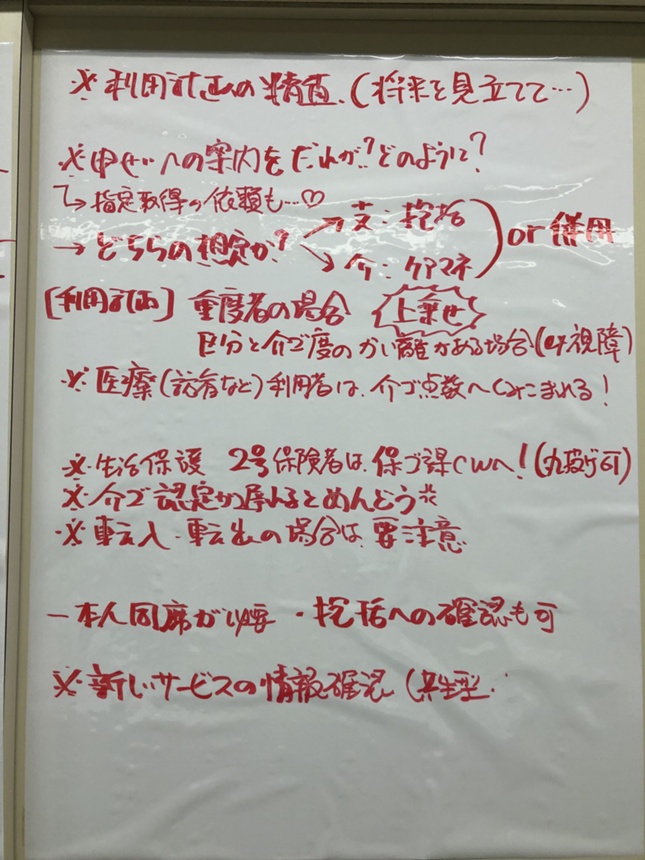 ※利用計画の精査.(将来を見立てて…)
※申せいへの案内をだれが?どのように?
↳指定取得の依頼も…♡
→どちらの想定か? → 支:抱括
→ 介:ケアマネ
or 併用
[利用計画] 重度者の場合 上乗せ
区分と介ゴ度のかい離がある場合(ex視障)
※医療(訪看など)利用者は、介ゴ点数へくみこまれる!
※生活保護 2号保険者は、保ゴ課CWへ!(丸投げ可)
※介ゴ認定が遅れるとめんどう※
※転入・転出の場合は、要注意
-本人同席が必要 ・抱括への確認も可
※新しいサービスの情報確認(共生型..